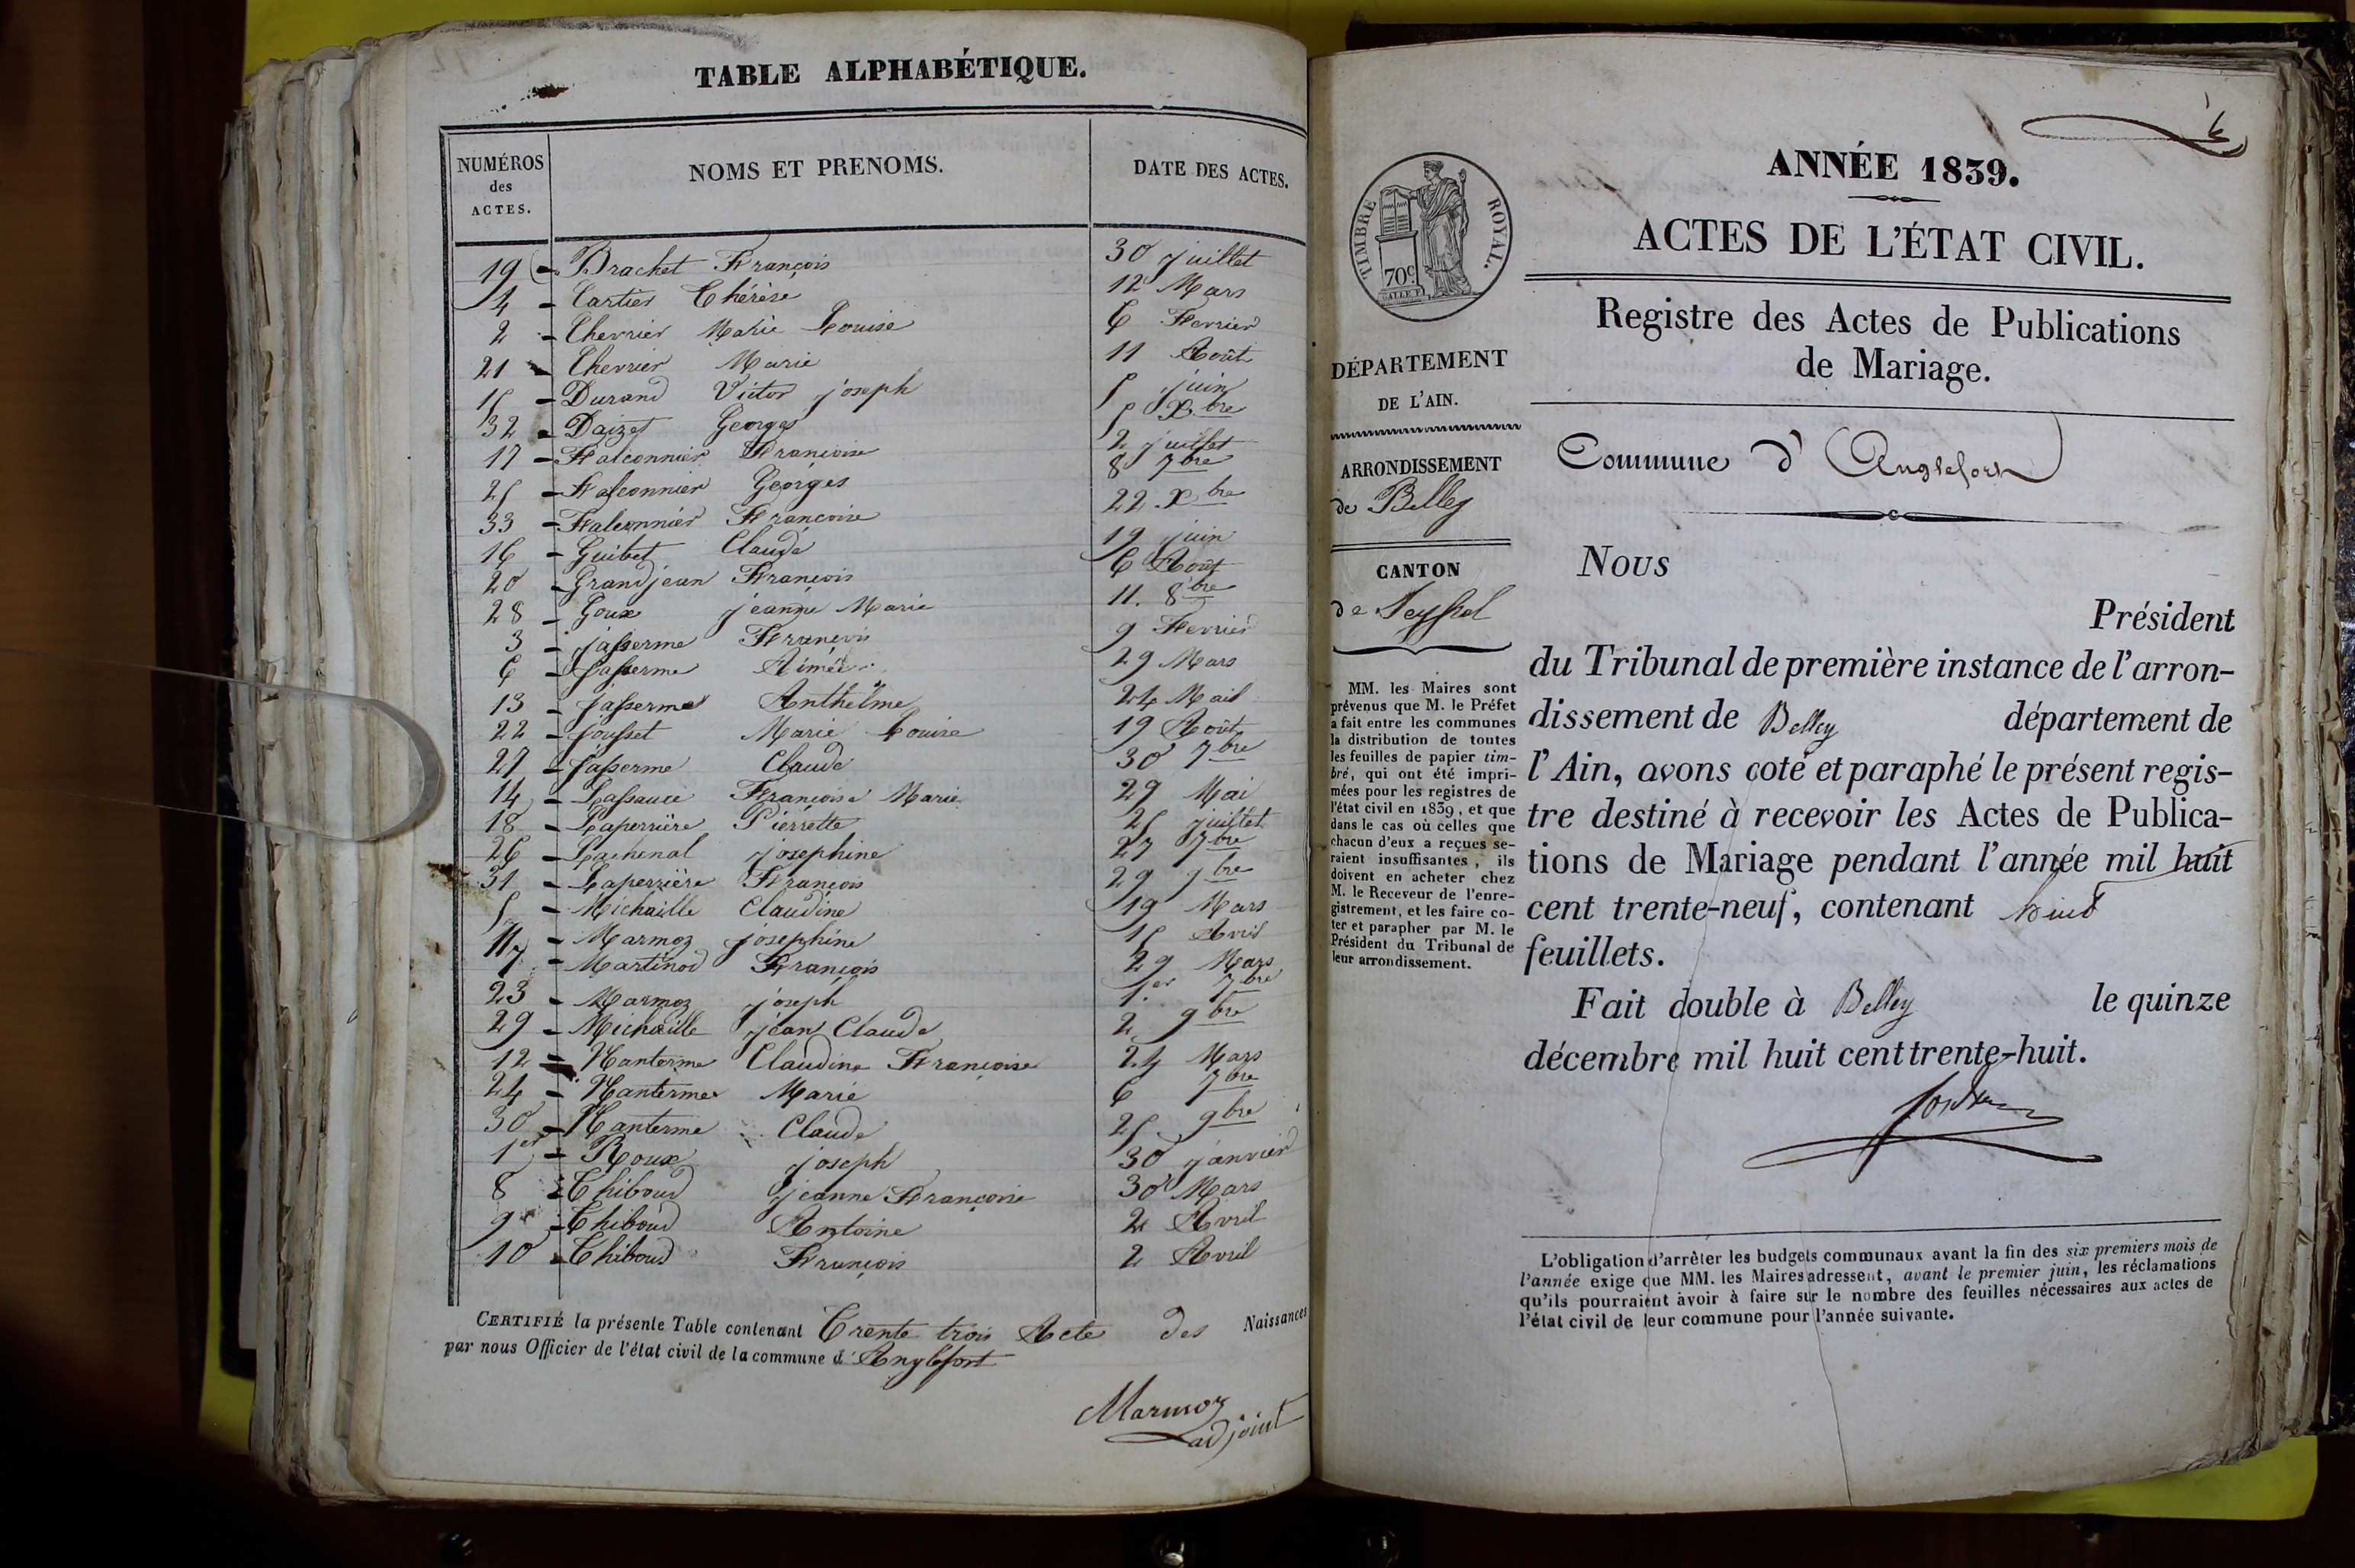 TABLE ALPHABÉTIQUE.
NUMÉROS des ACTES. NOMS ET PRENOMS. DATE DES ACTES.
19 - Brachet François 30 juillet
4 - Cartier Thérèse 12 Mars
2 - Chevrier Marie Louise 6 Fevrier
21 - Chevrier Marie 11 Août
15 - Durand Victor joseph 5 juin
32 - Daizet Georges 5 Xbre
17 - Falconnier Françoise 2 juillet
25 - Falconnier Georges 8 7bre
33 - Falconnier Francoise 22 Xbre
16 - Guibet Claude 19 juin
20 - Grandjean François 6 Août
28 - Goux jeanne Marie 11. 8bre
3 - jasserme François 9 Fevrier
6 - Jasserme Aimée 29 Mars
13 - jasserme Anthelme 24 Mai
22 - jousset Marie Louise 19 Août
27 - jasserme Claude 30 7bre
14 - Lassauce Françoise Marie 29 Mai
18 - Laperrière Pierrette 25 juillet
26 - Lachenal josephine 27 7bre
31 - Laperrière François 29 9bre
5 - Michaille Claudine 19 Mars
11 - Marmoz josephine 15 Avril
7 - Martinod François 29 Mars
23 - Marmoz joseph 1er 7bre
29 - Michaille jean Claude 2 9bre
12 - Nanterme Claudine Françoise 24 Mars
24 - Nanterme Marie 6 7bre
30 - Nanterme Claude 25 9bre
1er - Roux joseph 30 janvier
8 - Thiboud jeanne Françoise 30 Mars
9 - Thiboud Antoine 2 Avril
10 - Thiboud François 2 Avril
CERTIFIÉ la présente Table contenant Trente trois Acte des Naissances
par nous Officier de l'état civil de la commune d'Anglefort
Marmoz
adjoint
TIMBRE ROYAL.
70c.
DÉPARTEMENT
DE L'AIN.
ARRONDISSEMENT
de Belley
CANTON
de Seyssel
MM. les Maires sont
prévenus que M. le Préfet
a fait entre les communes
la distribution de toutes
les feuilles de papier tim-
bré, qui ont été impri-
mées pour les registres de
l'état civil en 1839, et que
dans le cas où celles que
chacun d'eux a reçues se-
raient insuffisantes, ils
doivent en acheter chez
M. le Receveur de l'enre-
gistrement, et les faire co-
ter et parapher par M. le
Président du Tribunal de
leur arrondissement.
ANNÉE 1839.
ACTES DE L'ÉTAT CIVIL.
Registre des Actes de Publications
de Mariage.
Commune d'Anglefort
Nous
Président
du Tribunal de première instance de l'arron-
dissement de Belley département de
l'Ain, avons coté et paraphé le présent regis-
tre destiné à recevoir les Actes de Publica-
tions de Mariage pendant l'année mil huit
cent trente-neuf, contenant huit
feuillets.
Fait double à Belley le quinze
décembre mil huit cent trente-huit.
L'obligation d'arrêter les budgets communaux avant la fin des six premiers mois de
l'année exige que MM. les Maires adressent, avant le premier juin, les réclamations
qu'ils pourraient avoir à faire sur le nombre des feuilles nécessaires aux actes de
l'état civil de leur commune pour l'année suivante.